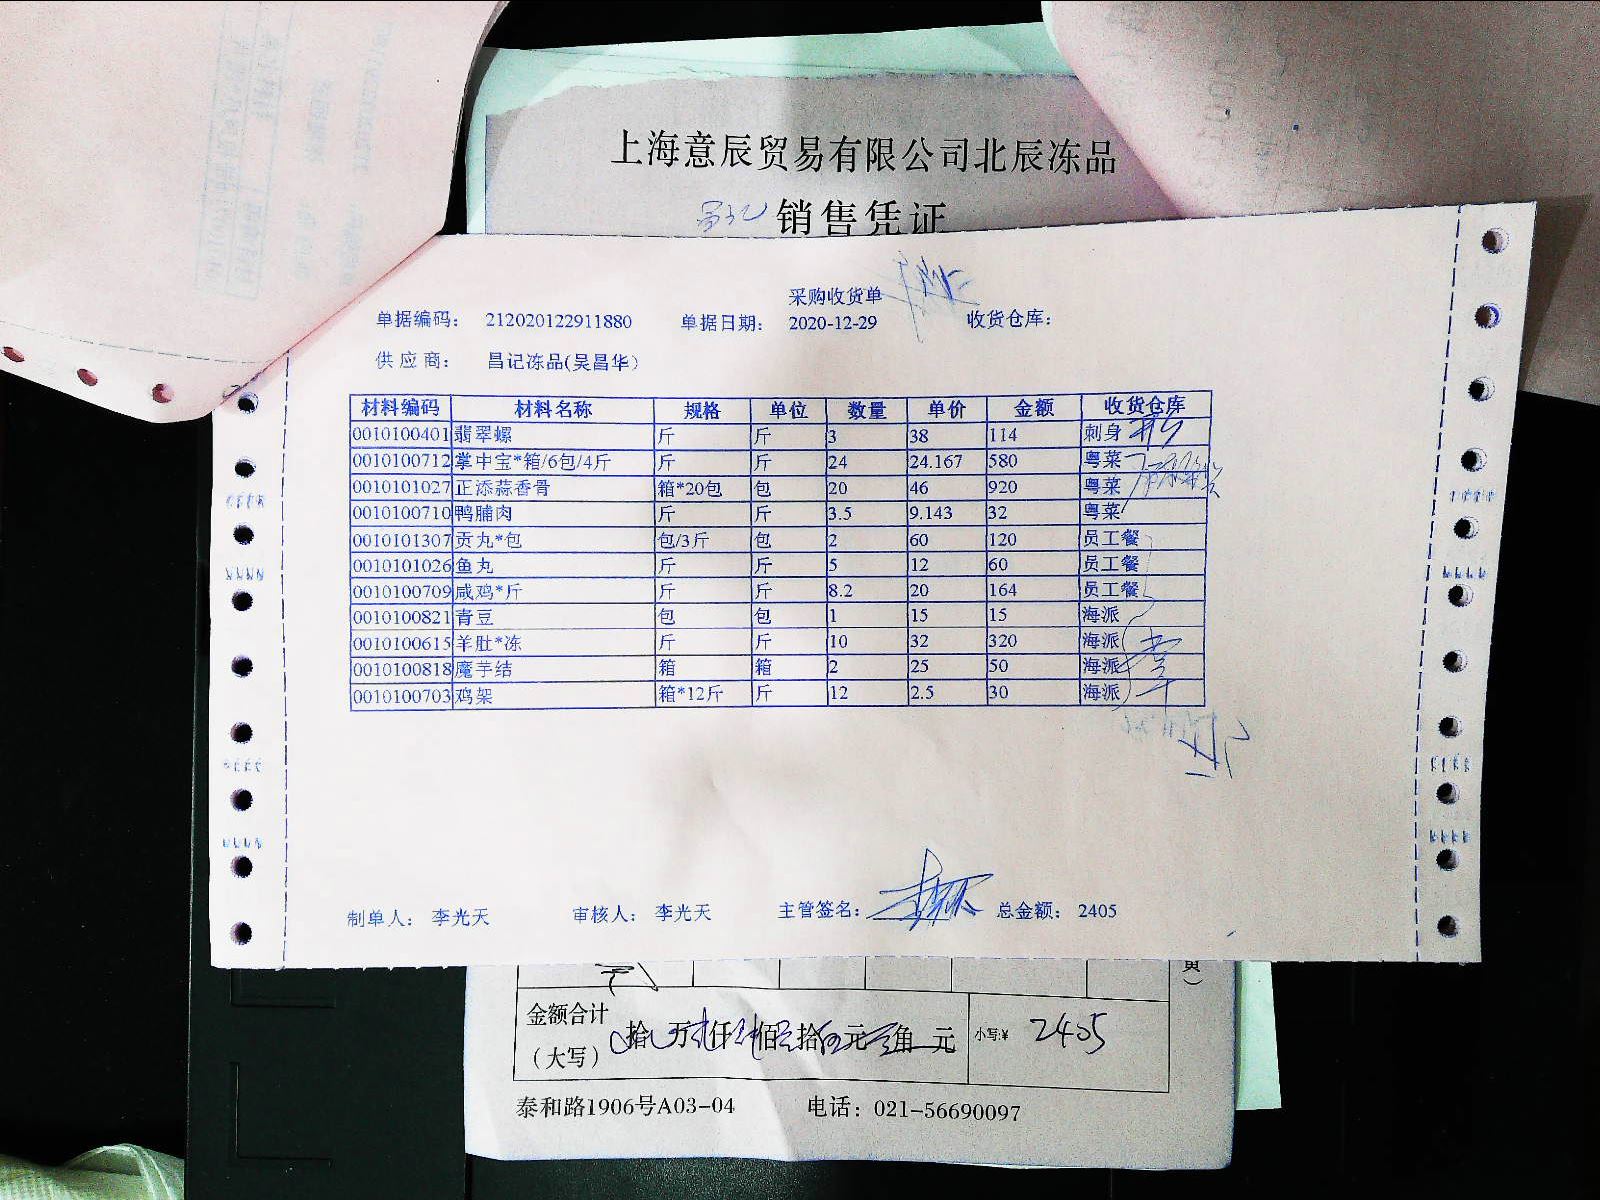 上海意辰贸易有限公司北辰冻品
销售凭证
采购收货单
单据编码： 212020122911880 单据日期： 2020-12-29 收货仓库：
供应商： 昌记冻品(吴昌华)
材料编码 材料名称 规格 单位 数量 单价 金额 收货仓库
0010100401 翡翠螺 斤 斤 3 38 114 刺身
0010100712 掌中宝*箱/6包/4斤 斤 斤 24 24.167 580 粤菜
0010101027 正添蒜香骨 箱*20包 包 20 46 920 粤菜
0010100710 鸭脯肉 斤 斤 3.5 9.143 32 粤菜
0010101307 贡丸*包 包/3斤 包 2 60 120 员工餐
0010101026 鱼丸 斤 斤 5 12 60 员工餐
0010100709 咸鸡*斤 斤 斤 8.2 20 164 员工餐
0010100821 青豆 包 包 1 15 15 海派
0010100615 羊肚*冻 斤 斤 10 32 320 海派
0010100818 魔芋结 箱 箱 2 25 50 海派
0010100703 鸡架 箱*12斤 斤 12 2.5 30 海派
制单人： 李光天 审核人： 李光天 主管签名： 总金额： 2405
金额合计
（大写） 拾 万 仟 佰 拾 元 角 元 小写:¥ 2405
泰和路1906号A03-04 电话：021-56690097